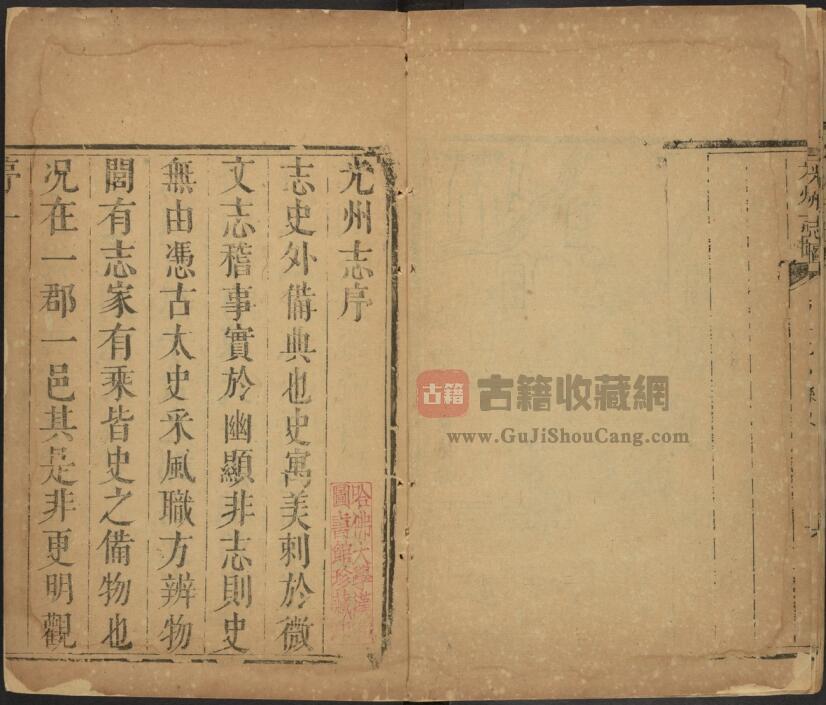 光州志
古籍 古籍收藏網
www.GuJiShouCang.com
光州志序
哈佛大學漢
圖書館珍藏印
志史外備典也史寓美刺於微
文志稽事實於幽顯非志則史
無由憑古太史采風職方辨物
閭有志家有乘皆史之備物也
况在一郡一邑其是非更明觀
序 一